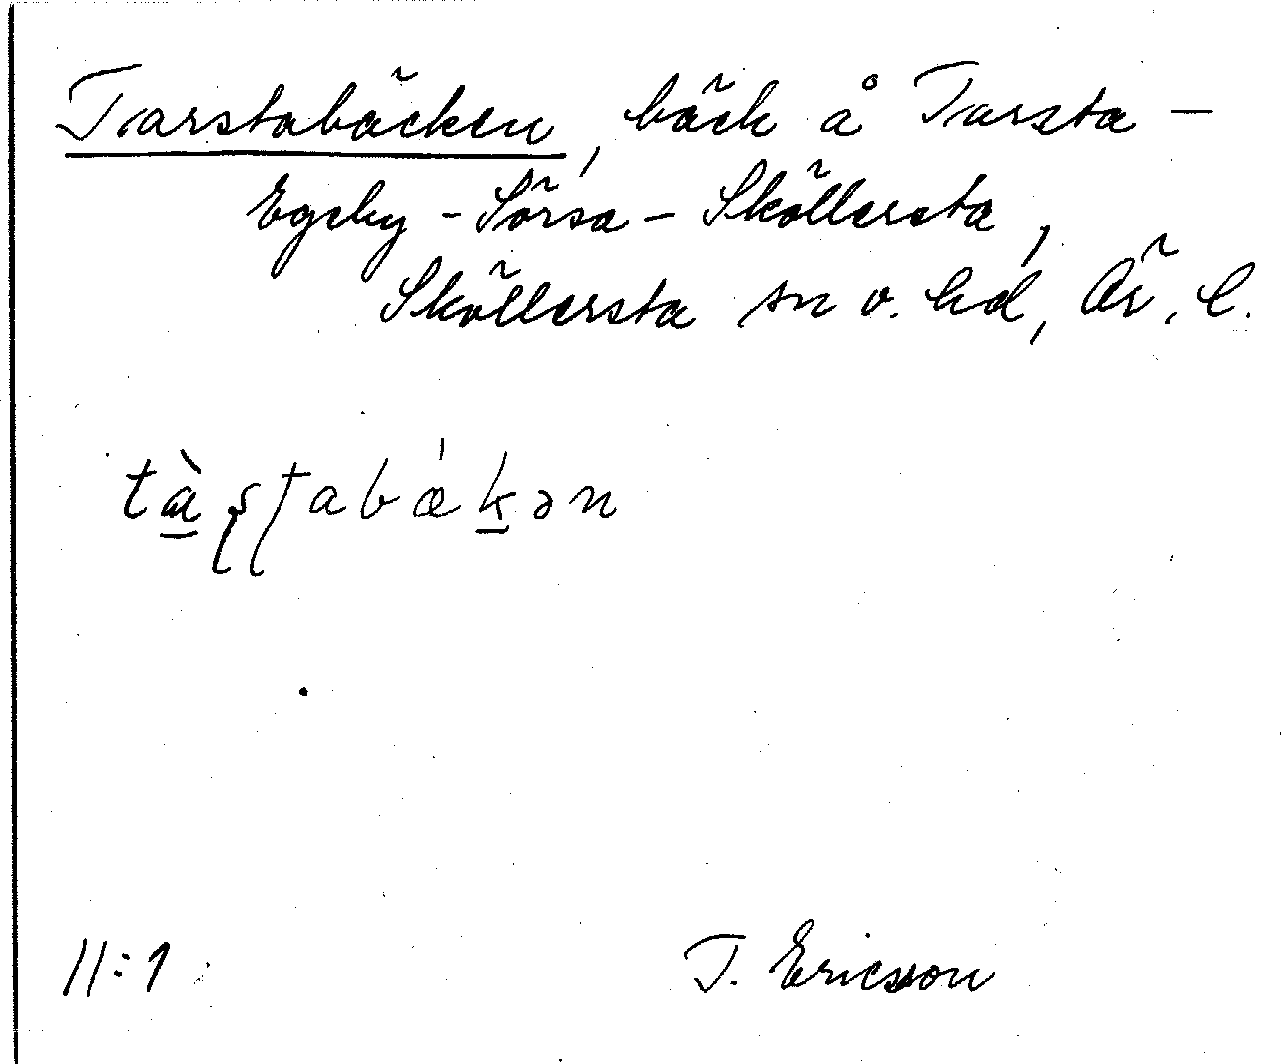 Tarstabäcken, bäck å Tarsta –
Egeby – Sörsa – Sköllersta,
Sköllersta sn o. hd, Ör. l.
tà̱ʂʈabǽḵən
11:1
T. Ericsson